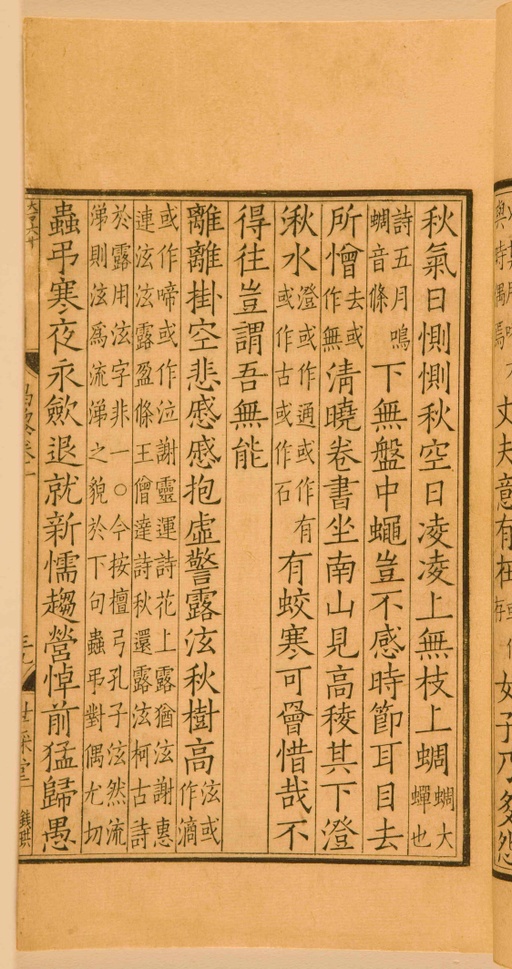 丈夫意有在
女子乃多怨
秋氣日惻惻秋空日凌凌上無枝上蜩蜩大蟬也
詩五月鳴蜩音條下無盤中蠅豈不感時節耳目去
所憎去或作無清曉卷書坐南山見高稜其下澄
湫水澄或作逈或作有或作古或作石有蛟寒可罾惜哉不
得往豈謂吾無能
離離掛空悲慼慼抱虛警露泫秋樹高泫或作滴
或作啼或作泣謝靈運詩花上露猶泫謝惠
連泫泫露盈條王僧達詩秋還露泫柯古詩
於露用泫字非一○今按檀弓孔子泫然流
涕則泫爲流涕之貌於下句蟲弔對偶尤切
蟲弔寒夜永歛退就新懦趨營悼前猛歸愚
世綵堂